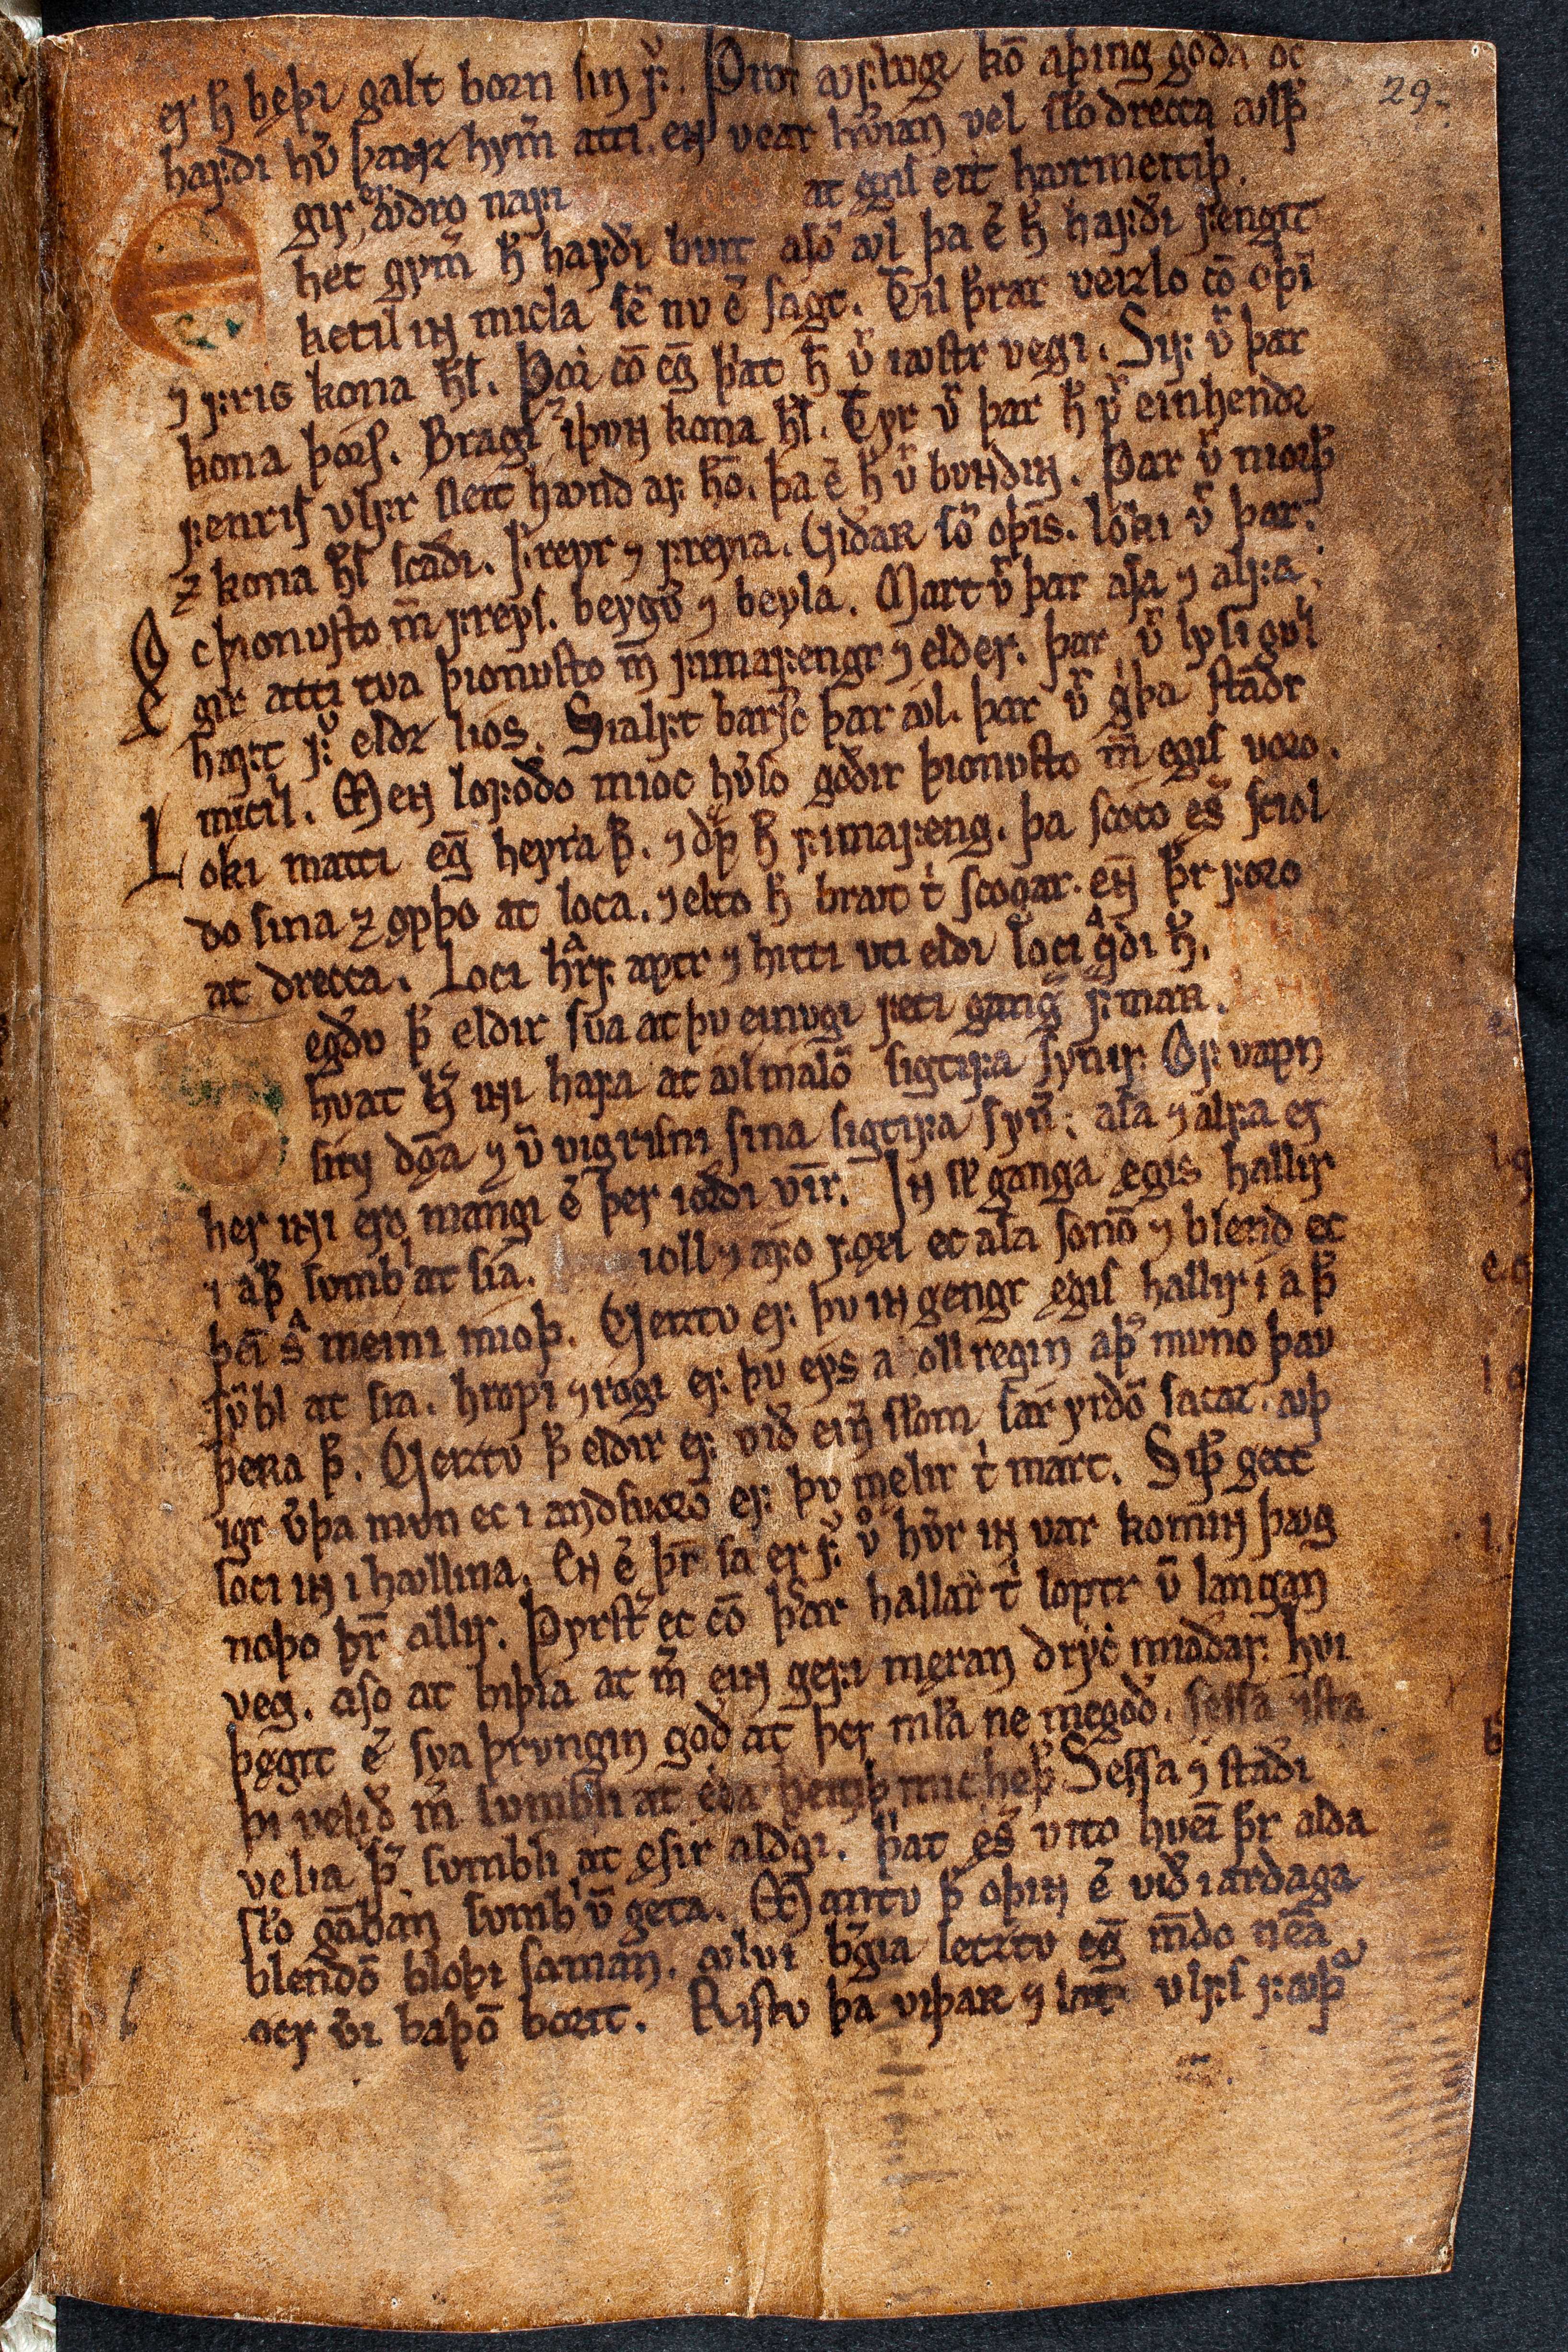 29.
er h̅ beþi galt born ſin ẏ. Þrot ꜹflvgr kō aþing goða oc
hafði hv̄ þanz hym̄ atti. en vear hv̄ian vel ſło drecca ꜹlþ
gir er ꜹðro nafi at ęgiſ eitt hꜹrmeitiþ.
het gym̄ h̅ hafði buit aſō ꜹl þa ē h̅ hafði fengit
ketil in micla ſē nv ē ſagt. Til þrar veizlo cō oþī
⁊ frig kona hſ̅. Þoꝛ cō eḡ þat h̅ v̄ iꜹſtr vegi. Sif v̄ þar
kona þorſ. Bragi ⁊ iþvn kona hſ̅. Tyr v̄ þar h̅ v̄ einhendꝛ
fenriſ vlfr ſleit hꜹnd af hō. þa ē h̅ v̄ bvndin. Þar v̄ niorþ
⁊ kona hſ̅ ſcaði. freyr ⁊ freyia. viðaʀ ſō oþīs. loki v̄ þar.
⁊ þionuſto m̄ freyſ. beygv̄ ⁊ beyla. Mart v̄ þar aſa ⁊ alfa.
Egir atti tva þionuſto m̄ fimafengr ⁊ elder. þar v̄ lyſigvl
haft f̄ eldꝛ lios. Sialft barſc þar ꜹl. þar v̄ gͥþa ſtaðr
micil. Men lofoðo mioc hv̄ſo goðir þionuſto m̄ egiſ voro.
Loki matti eḡ heyra þ̅. ⁊ dͣp h̅ fimafeng. þa ſcoco eſ̄ ſciol
do ſina ⁊ ǫpþo at loca. ⁊ elto h̅ brꜹt t̓ ſcogar. en̄ þr̄ foro
at drecca. Loci hͣrf aptr ⁊ hitti vti eldi loci qͣddi h̅.
egðv þ̅ eldir ſva at þv einvgi feti gang̅ f̄man.
hvat h̅ ini hafa at ꜹlmalō ſigtifa ſynir. Of vapn
ſin dǭa ⁊ v̄ vigriſni ſina ſigtifa ſyn̄. aſa ⁊ alfa er
her ini erǫ mangi ē þer iorði vīr. In ſꝉ ganga ęgis hallir
i aþ̅ ſumbl at ſia. ioll ⁊ afo fǫri ec aſa ſonō ⁊ blend ec
þeī ſͣ meini mioþ. Veiztv ef þv in gengr ęgiſ hallir i a þ̅
ſv̄bl at ſia. hropi ⁊ rogi ef þv eyſ a oll regin aþ̅ mvno þav
þeʀa þ̅. Veiztv þ̅ eldir ef við ein̄ ſꝉom ſar yrðō ſacaz. ꜹþ
igr v̄þa mvn ec i andſvorō ef þv męlir t̓ mart. Siþ̅ gecc
loci in i hꜹllina. En ē þr̄ ſa er f̄ v̊ hv̄r in var komin þꜹg
noþo þr̄ allir. Þyrſt̄ ec cō þar hallar t̓ loptr v̄ langan
veg. aſo at biþia at m̄ ein gefi męran dryc miaðar. hvi
þęgit ē ſva þrvngin goð at þer męla ne megoð. ſeſſa ⁊ ſta
þi velið m̄ ſvmbli at eða heitiþ mic heþ̅. Seſſa ⁊ ſtaði
velia þ̅ ſvmbli at ęſir aldgi. þat eſ̄ vito hveī þr̄ alda
ſꝉo gāban ſumbl v̄ geta. Mantv þ̅ oþin ē við i ardaga
blendō bloþi ſaman. ꜹlvi b̄gia letztv eḡ m̄do nēa
ocr v̄i baþō borit. Riſtv þa viþaʀ ⁊ lat vlfſ fꜹþ̅